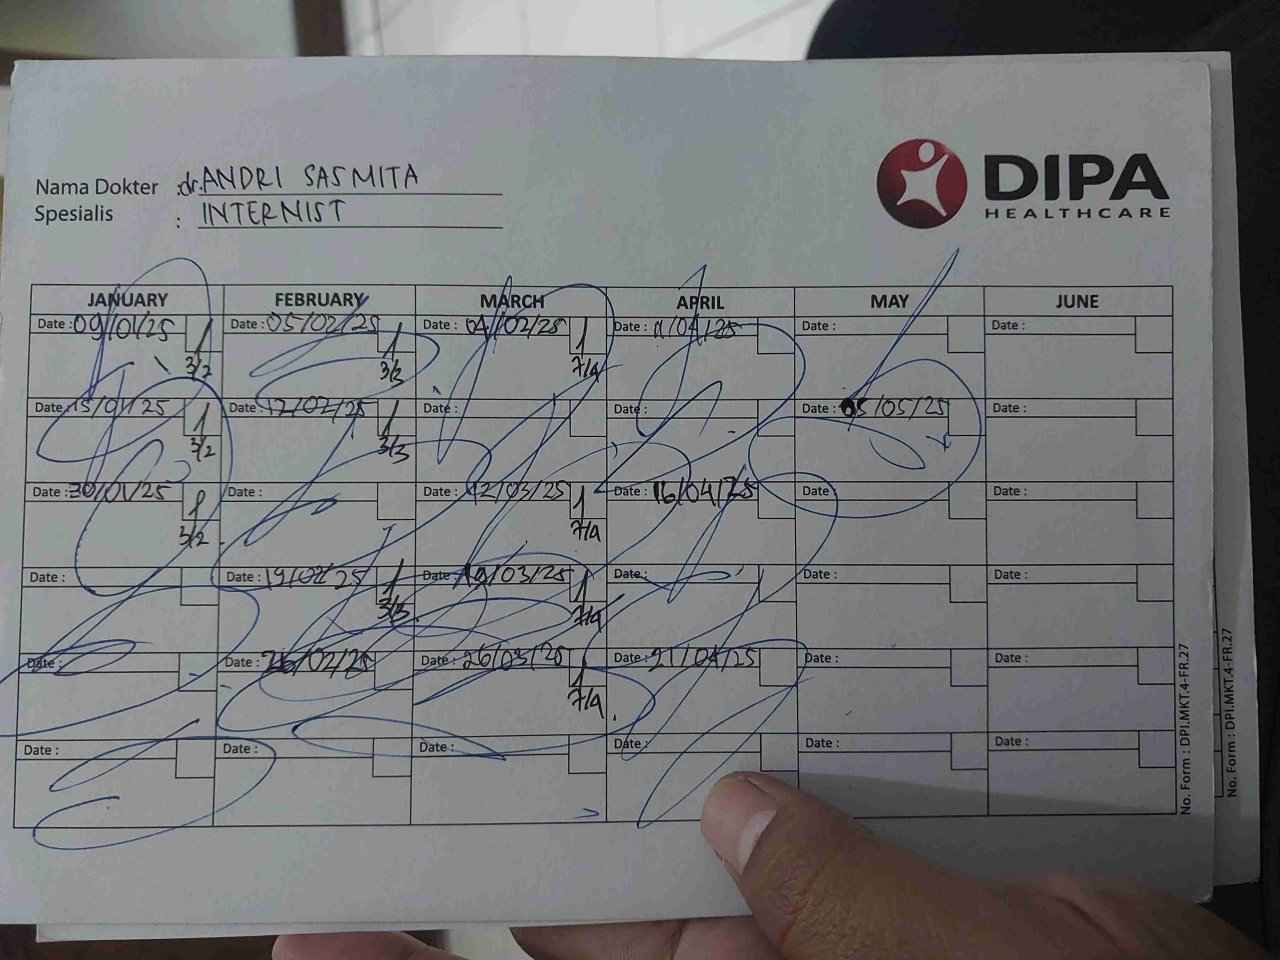 Nama Dokter : dr. ANDRI SASMITA
Spesialis : INTERNIST
DIPA
HEALTHCARE
JANUARY FEBRUARY MARCH APRIL MAY JUNE
Date : 09/01/25 Date : 05/02/25 Date : 04/02/25 Date : 11/04/25 Date : Date :
3/2 3/3 7/4
Date : 15/01/25 Date : 12/02/25 Date : Date : Date : 05/05/25 Date :
3/2 3/3
Date : 30/01/25 Date : Date : 12/03/25 Date : 16/04/25 Date : Date :
3/2 7/4
Date : Date : 19/02/25 Date : 19/03/25 Date : Date : Date :
3/3 7/4
Date : Date : 26/02/25 Date : 26/03/25 Date : 21/04/25 Date : Date :
7/4
Date : Date : Date : Date : Date : Date :
No. Form : DPI.MKT.4-FR.27
No. Form : DPI.MKT.4-FR.27